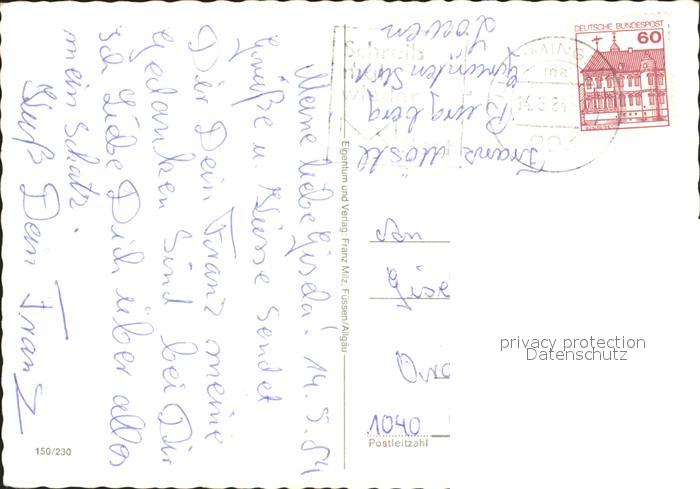 Meine liebe Gisela! 14.5.84
Grüße u. Küsse sendet
Dir Dein Franz meine
Gedanken sind bei Dir
ich Liebe Dich über alles
mein Schatz
Kuß Dein Franz
150/230
Eigentum und Verlag: Franz Milz, Füssen/Allgäu
Franz
Burgberg
DEUTSCHE BUNDESPOST
60
Schreib
mal
wieder
An
1040
Postleitzahl
privacy protection
Datenschutz